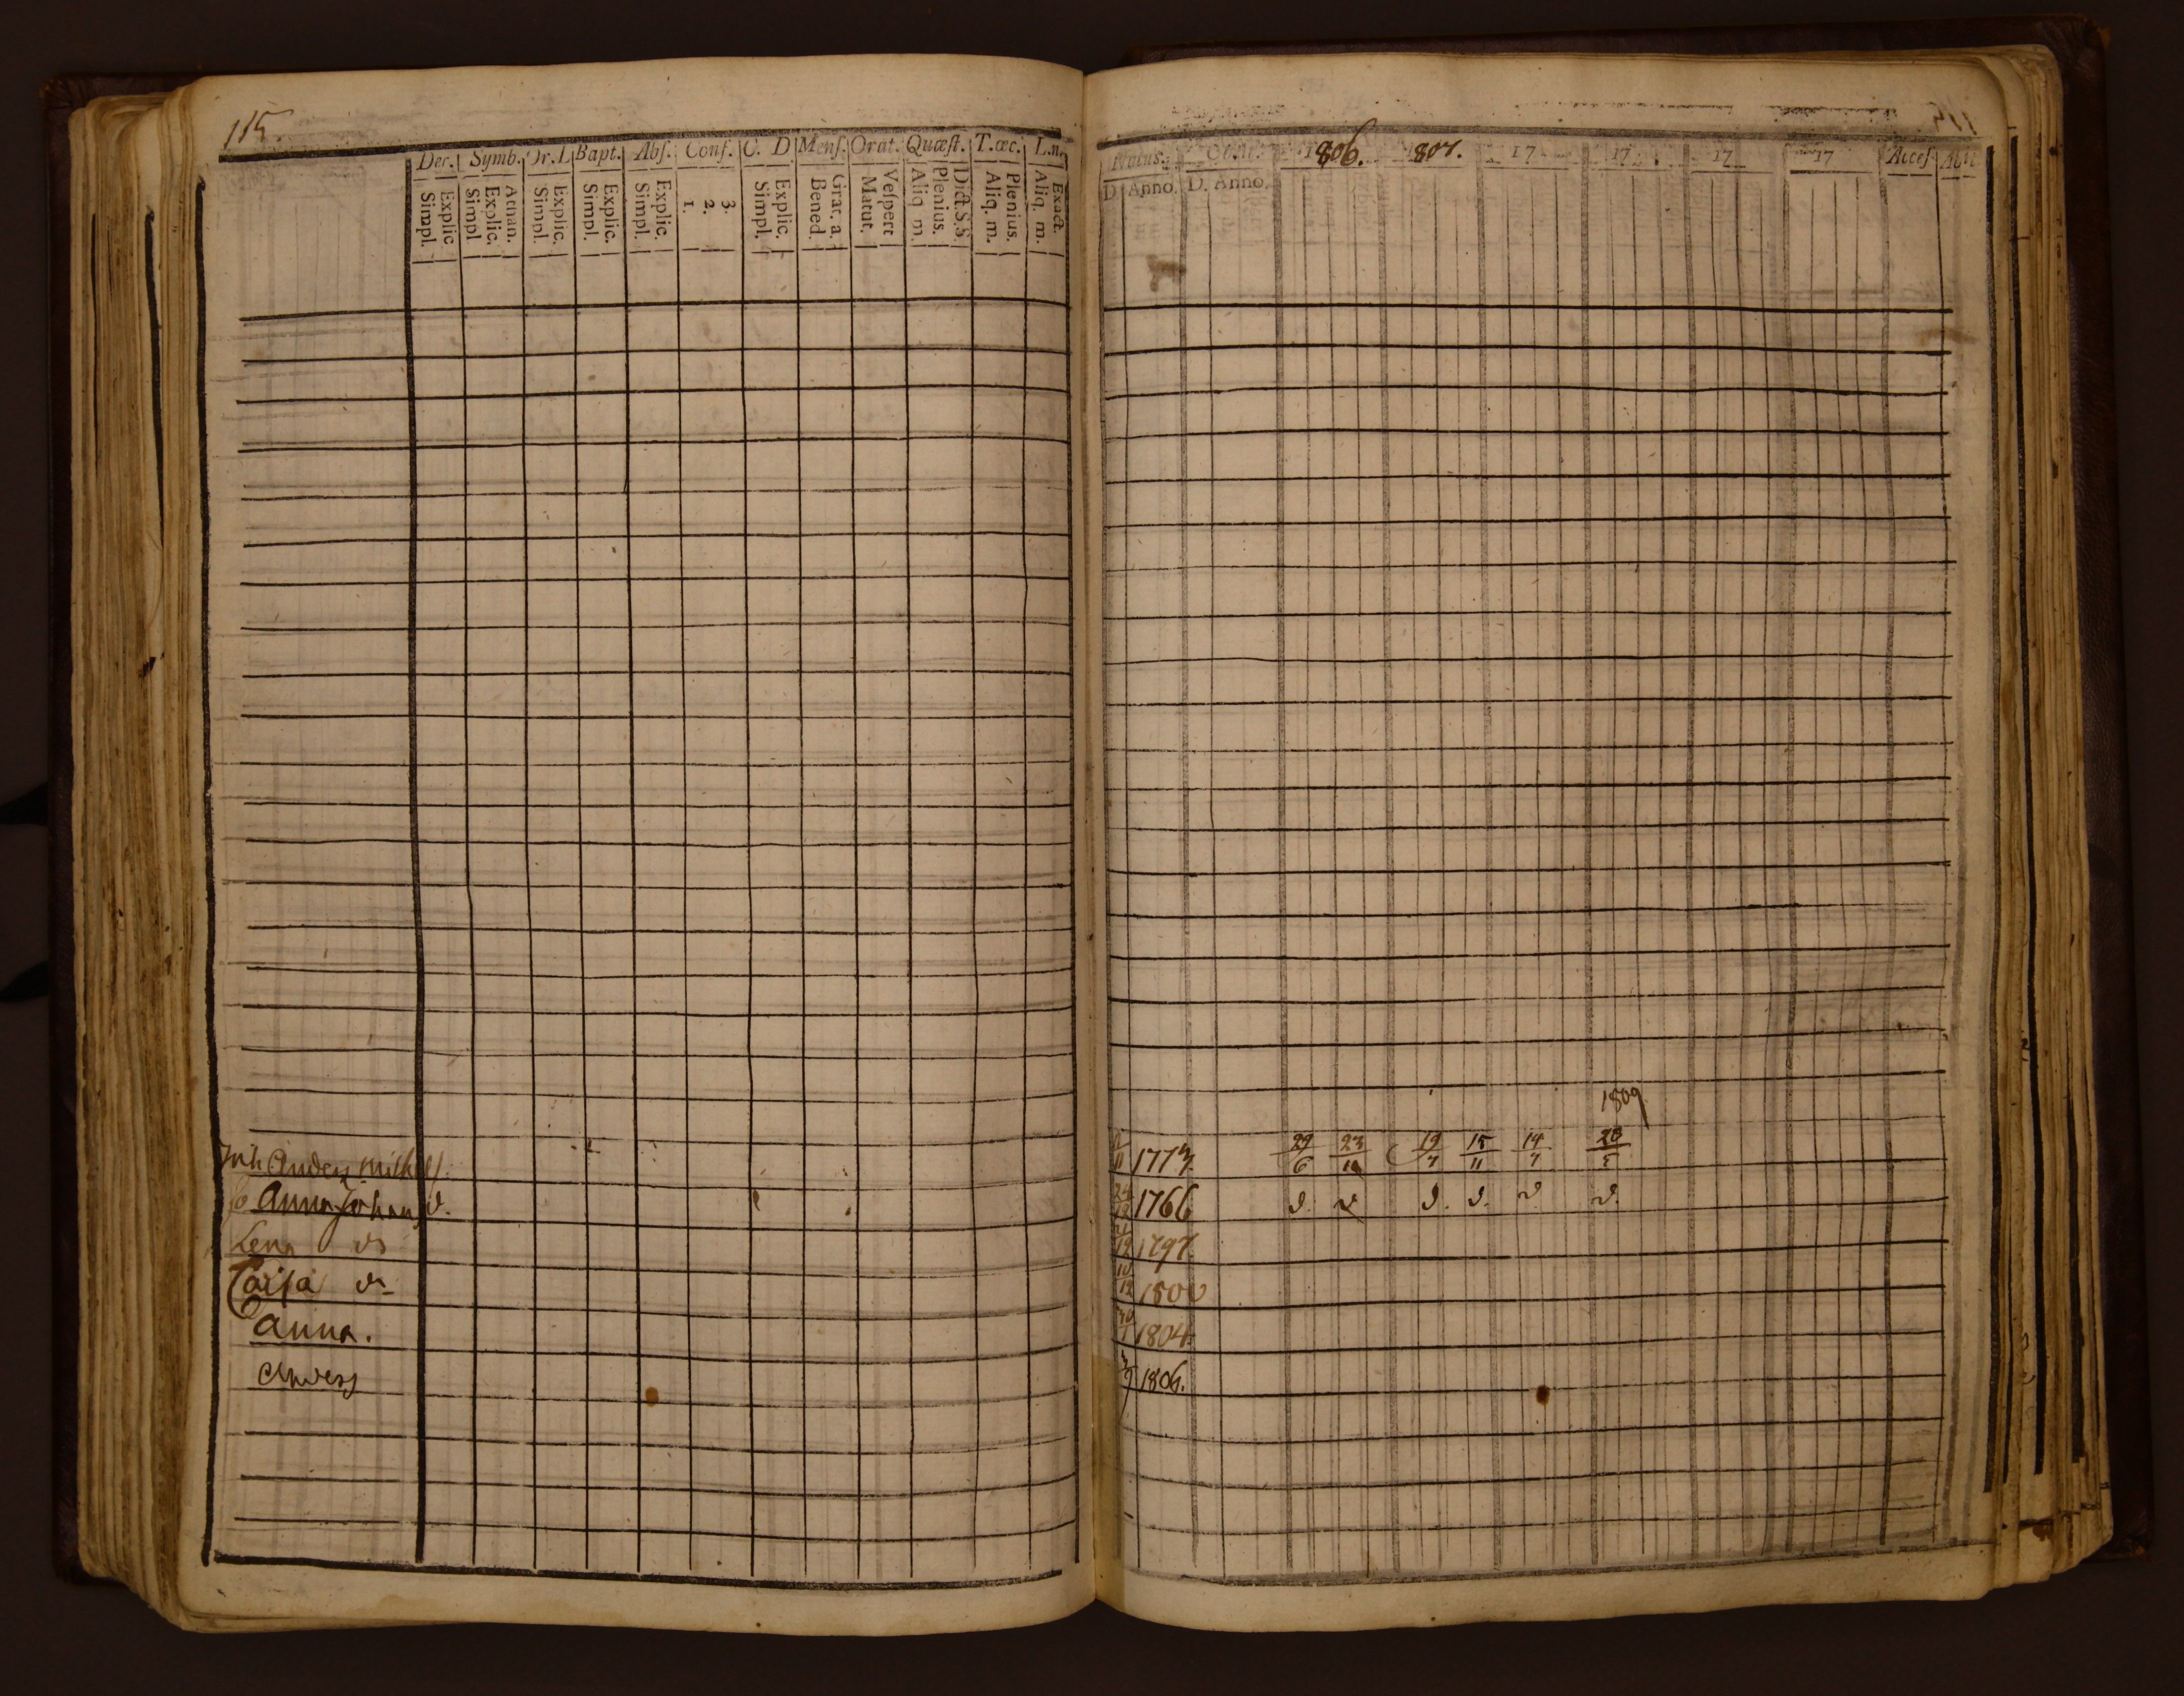 115.
Dec. Symb. Or. D Bapt. Abs. Conf. C. D Mens. Orat. Quæst. T. œc. L. n.
Explic Simpl. Athan. Explic. Simpl Explic. Simpl. Explic. Simpl. Explic. Simpl. 3. 2. 1. Explic. Simpl. Grat. a. Bened. Vespert Matut. Dict. S. S. Plenius. Aliq m. Plenius. Aliq. m. Exact. Aliq. m.
Anders
Anna Johans d.
Lena d
Caisa d
Anna.
Anders
Natus. Obiit. 1806. 1807. 17 17 17 17 Acces. Abit
D. Anno. D. Anno.
1809
1773 29/6 23/10 19/7 15/11 14/7 28/5
1766 d. d. d. d. d. d.
1797.
1800
1804.
1806.